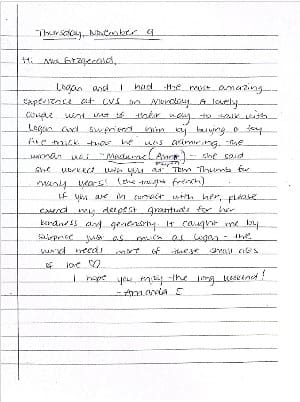 Thursday, November 9
Hi Mrs. Fitzgerald,
Logan and I had the most amazing
experience at CVS on Monday. A lovely
couple went out of their way to talk with
Logan and surprised him by buying a toy
fire truck that he was admiring. The
woman was "Madame (
) - she said
she worked with you at Tom Thumb for
many years! (she taught french)
If you are in contact with her, please
extend my deepest gratitude for her
kindness and generosity. It caught me by
surprise just as much as Logan - the
world needs more of these small acts
of love ♡
I hope you enjoy the long weekend!
- Amanda E